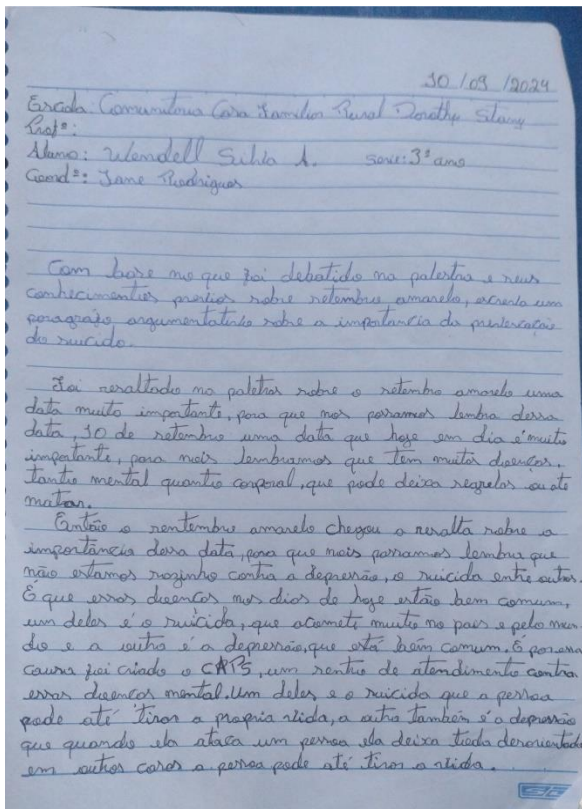 10 / 09 / 2024
Escola: Comunitoria Casa Familia Rural Dorothy Stang
Profª:
Aluno: Wendell Silva A. serie: 3ª ano
Coordª: Jane Rodrigues
Com base no que foi debatido na palestra e seus
conhecimentos previos sobre setembro amarelo, escreva um
paragrafo argumentativo sobre a importancia da
do suicido.
Foi resaltado na paletras sobre o setembro amarelo uma
data muito importante, para que nos possamos lembra dessa
data 10 de setembro uma data que hoje em dia é muito
importante, para nois lembramos que tem muitas doencas.
tanto mental quanto corporal, que pode deixa segelas ou até
matar.
Então o sentembro amarelo chegou a resalta sobre a
importância dessa data, para que nois possamos lembra que
não estamos sozinho contra a depressão, o suicida entre outros.
E que essas doencas nos dias de hoje estão bem comum,
um deles é o suicida, que acomete muito no pais e pelo mun
do e a outra é a depressão, que está bem comum. E por essa
causa foi criado o CAPS, um sentro de atendimento contra
essas doencas mental. Um deles e o suicida que a pessoa
pode até tirar a propria vida, a outra também é a depressão
que quando ela ataca um pessoa ela deixa toda desorientada
em outros casos a pessoa pode até tirar a vida.